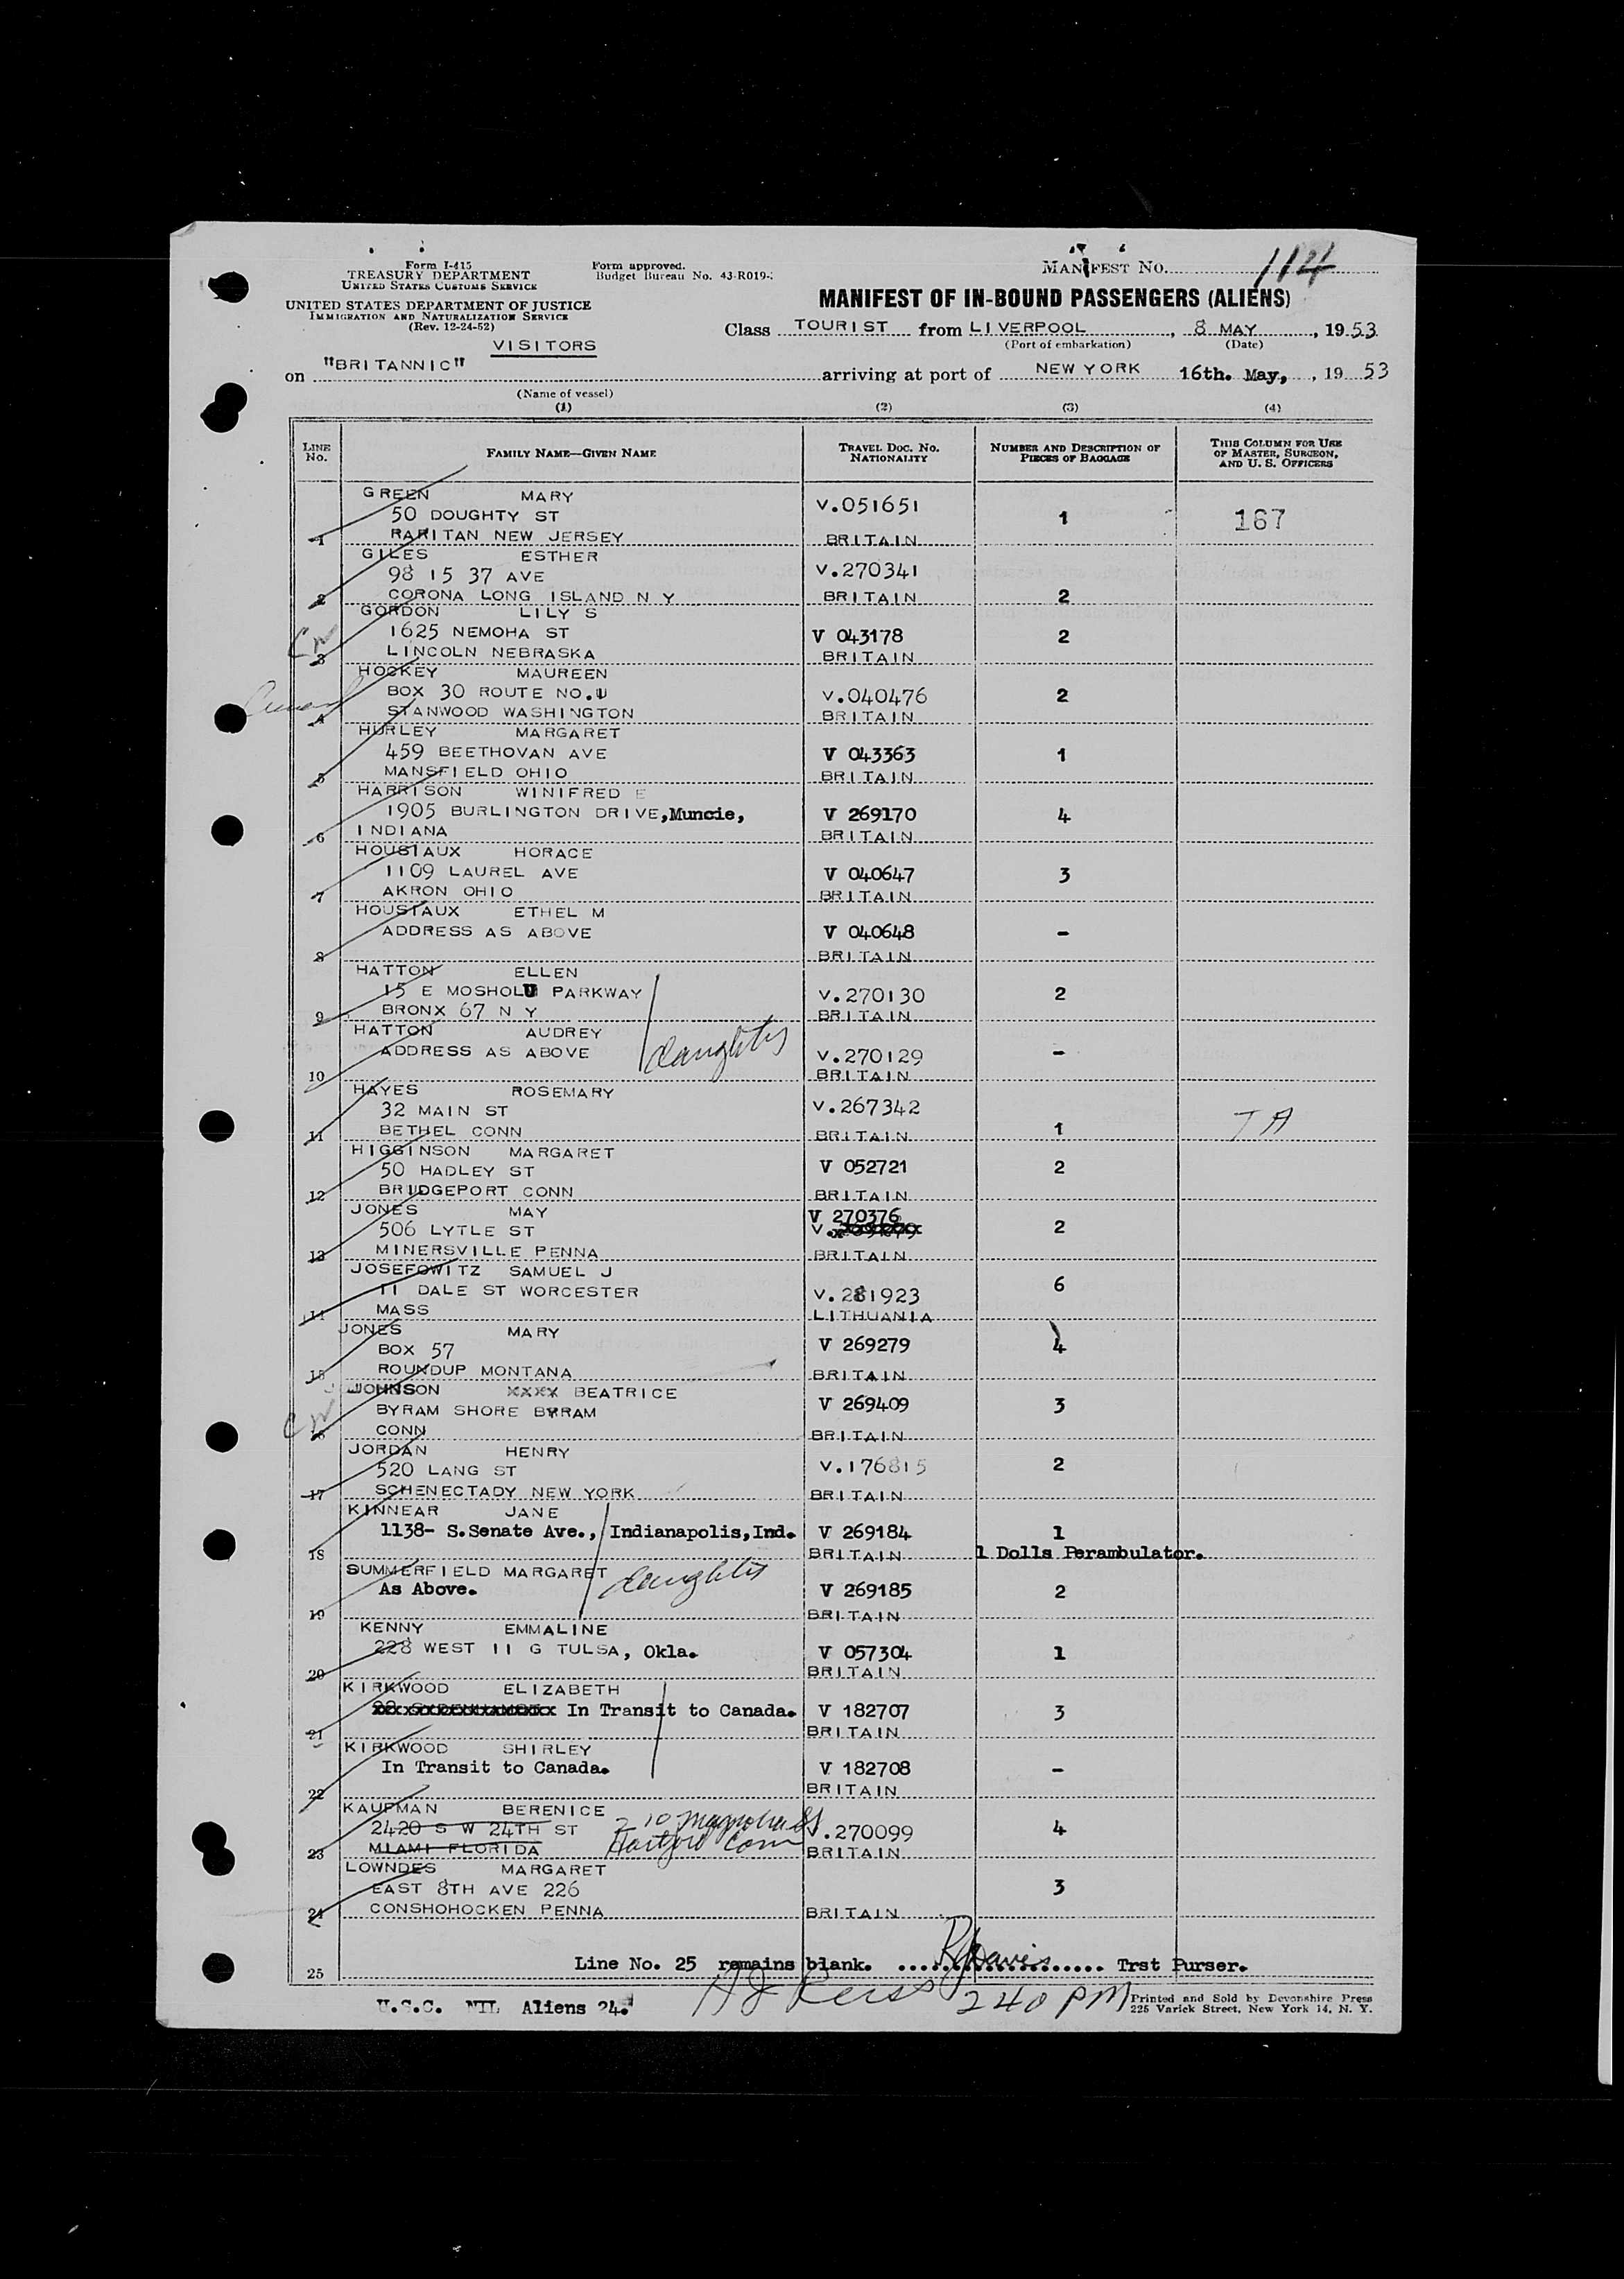 Form I-415
TREASURY DEPARTMENT
UNITED STATES CUSTOMS SERVICE
UNITED STATES DEPARTMENT OF JUSTICE
IMMIGRATION AND NATURALIZATION SERVICE
(Rev. 12-24-52)
Form approved.
Budget Bureau No. 43-R019-
MANIFEST NO. 114
MANIFEST OF IN-BOUND PASSENGERS (ALIENS)
Class TOURIST from LIVERPOOL, 8 MAY, 1953
(Port of embarkation) (Date)
VISITORS
on "BRITANNIC" arriving at port of NEW YORK 16th. May, , 19 53
(Name of vessel)
(1) (2) (3) (4)
LINE No. FAMILY NAME—GIVEN NAME TRAVEL DOC. NO. NATIONALITY NUMBER AND DESCRIPTION OF PIECES OF BAGGAGE THIS COLUMN FOR USE OF MASTER, SURGEON, AND U. S. OFFICERS
GREEN MARY V.051651
50 DOUGHTY ST 1 167
1 RARITAN NEW JERSEY BRITAIN
GILES ESTHER
98 15 37 AVE V.270341
2 CORONA LONG ISLAND N Y BRITAIN 2
GORDON LILY S
CW 1625 NEMOHA ST V 043178 2
3 LINCOLN NEBRASKA BRITAIN
HOCKEY MAUREEN
BOX 30 ROUTE NO. V.040476 2
4 STANWOOD WASHINGTON BRITAIN
HURLEY MARGARET
459 BEETHOVAN AVE V 043363 1
5 MANSFIELD OHIO BRITAIN
HARRISON WINIFRED E
1905 BURLINGTON DRIVE,Muncie, V 269170 4
6 INDIANA BRITAIN
HOUSIAUX HORACE
1109 LAUREL AVE V 040647 3
7 AKRON OHIO BRITAIN
HOUSIAUX ETHEL M
ADDRESS AS ABOVE V 040648 -
8 BRITAIN
HATTON ELLEN
15 E MOSHOLU PARKWAY V.270130 2
9 BRONX 67 N Y BRITAIN
HATTON AUDREY
ADDRESS AS ABOVE daughter V.270129 -
10 BRITAIN
HAYES ROSEMARY
32 MAIN ST V.267342
11 BETHEL CONN BRITAIN 1 TA
HIGGINSON MARGARET
50 HADLEY ST V 052721 2
12 BRIDGEPORT CONN BRITAIN
JONES MAY V 270376
506 LYTLE ST V. 2
13 MINERSVILLE PENNA BRITAIN
JOSEFOWITZ SAMUEL J
11 DALE ST WORCESTER V.281923 6
14 MASS LITHUANIA
JONES MARY
BOX 57 V 269279 4
15 ROUNDUP MONTANA BRITAIN
JOHNSON XXXX BEATRICE
CW BYRAM SHORE BYRAM V 269409 3
16 CONN BRITAIN
JORDAN HENRY
520 LANG ST V.176815 2
17 SCHENECTADY NEW YORK BRITAIN
KINNEAR JANE
1138- S.Senate Ave., Indianapolis,Ind. V 269184 1
18 BRITAIN 1 Dolls Perambulator.
SUMMERFIELD MARGARET daughter
As Above. V 269185 2
19 BRITAIN
KENNY EMMALINE
228 WEST 11 G TULSA, Okla. V 057304 1
20 BRITAIN
KIRKWOOD ELIZABETH
In Transit to Canada. V 182707 3
21 BRITAIN
KIRKWOOD SHIRLEY
In Transit to Canada. V 182708 -
22 BRITAIN
KAUFMAN BERENICE 210 Magnolia St
2420 S W 24TH ST Hartford Conn V.270099 4
23 MIAMI FLORIDA BRITAIN
LOWNDES MARGARET
EAST 8TH AVE 226 3
24 CONSHOHOCKEN PENNA BRITAIN
25 Line No. 25 remains blank. Davis Trst Purser.
U.S.C. NIL Aliens 24. 240 PM
Printed and Sold by Devonshire Press
225 Varick Street, New York 14, N. Y.